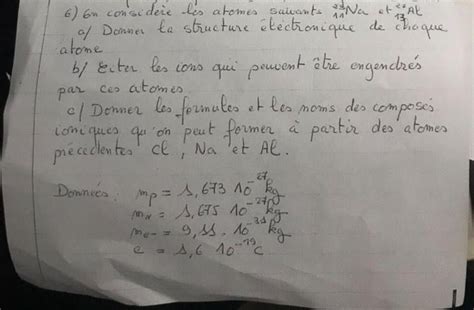 6) On considère les atomes suivants ²³₁₁Na et ²⁷₁₃Al
a/ Donner la structure électronique de chaque
atome
b/ Citer les ions qui peuvent être engendrés
par ces atomes
c/ Donner les formules et les noms des composés
ioniques qu'on peut former à partir des atomes
précédentes Cl, Na et Al.
Données: mp = 1,673 10⁻²⁷ kg
mn = 1,675 10⁻²⁷ kg
me- = 9,11 . 10⁻³¹ kg
e = 1,6 10⁻¹⁹ C